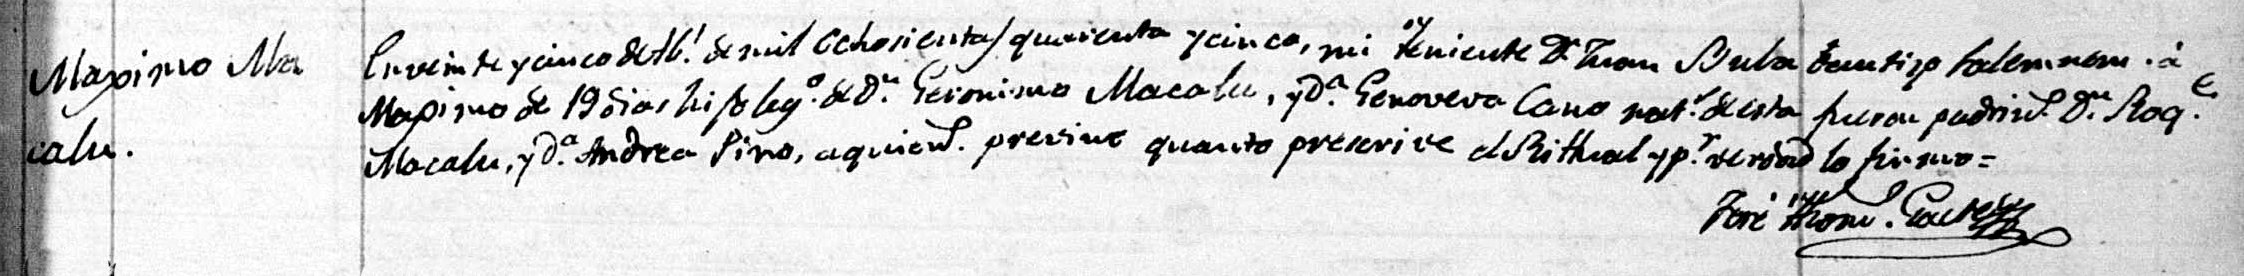 Maximo Ma
calu.
En veinte y cinco de 9b.l de mil Ochosientas quarenta y cinco, mi Teniente Dn Juan Buba bautizo solemnem. à
Maximo de 19 dias hijo leg.o de Dn Geronimo Macalu, y D.a Genoveva Cano nat.s de esta fueron padrin.s Dn Roq.e
Macalu, y D.a Andrea Pino, a quien.s previne quanto prescrive el Rithual y p.r verdad lo firmo=
José Thom.s